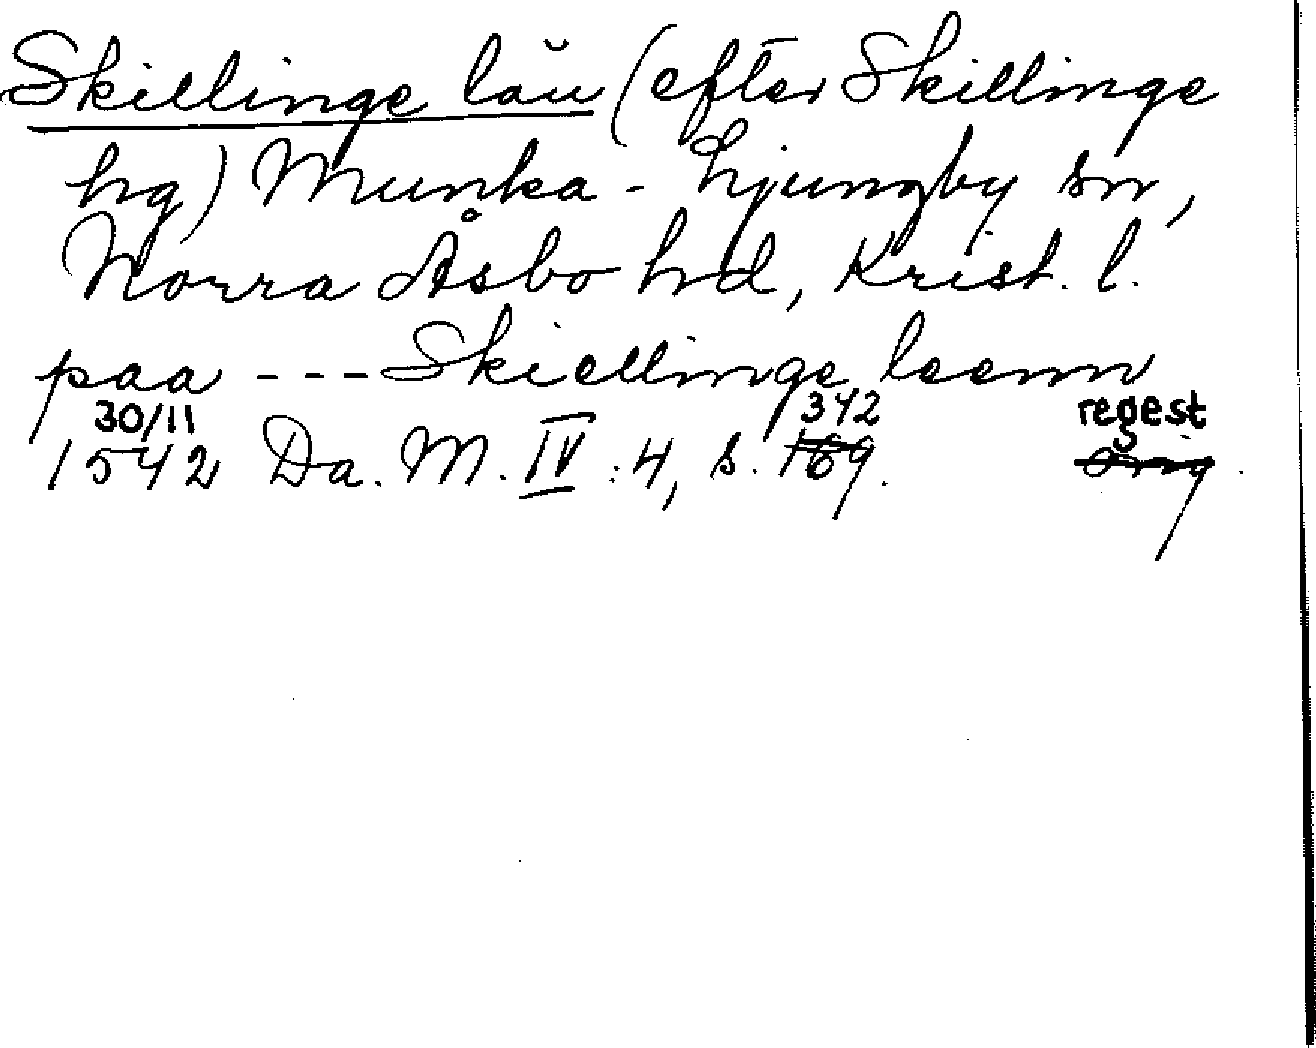 Skillinge lău (efter Skillinge
hg) Munka-Ljungby sn,
Norra Åsbo hd, Krist. l.
paa --- Skiellinge leenn
30/11 342 regest
1542 Da. M. IV:4, s. 169. orig.